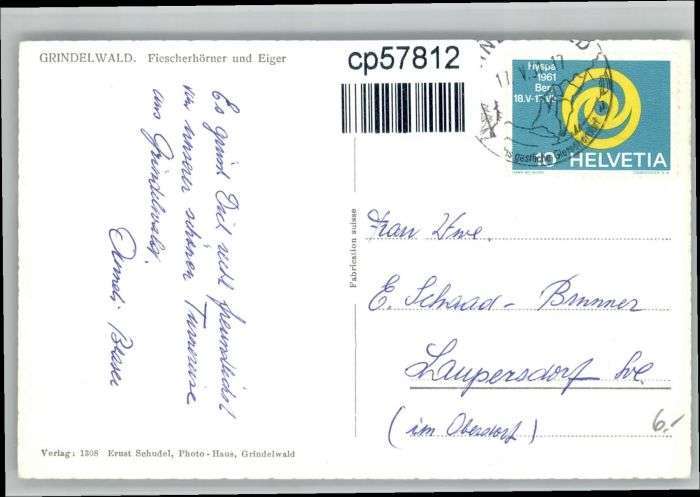 GRINDELWALD. Fiescherhörner und Eiger
cp57812
Hyspa
1961
Bern
18.V-17.VII
10 HELVETIA
Es grüsst Dich recht freundlichst
von unserer schönen Turnreise
aus Grindelwald.
Fabrication suisse
Frau Wwe.
E. Schaad-Brunner
Laupersdorf Sol.
(im Oberdorf)
6.-
Verlag: 1308 Ernst Schudel, Photo-Haus, Grindelwald